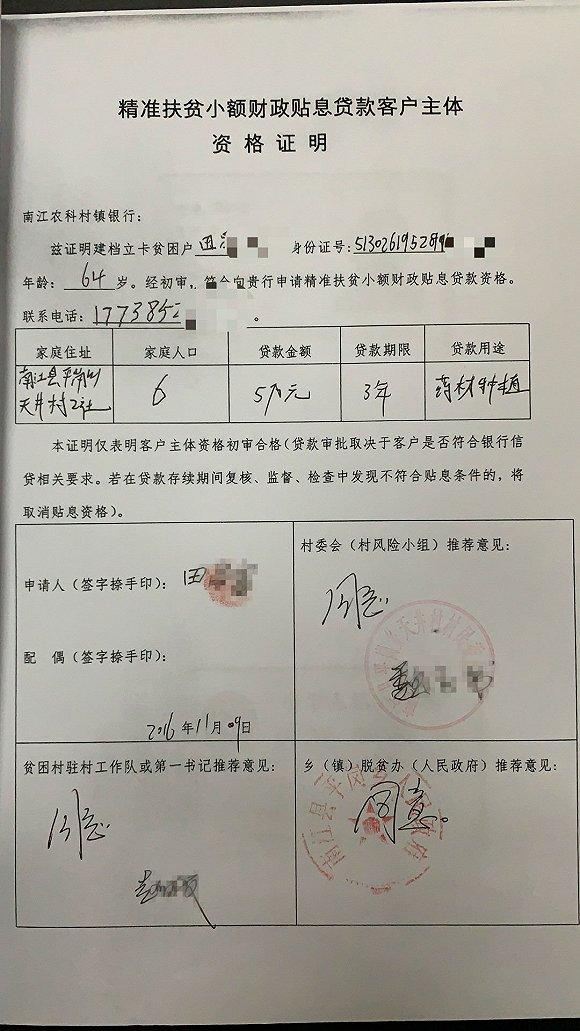 精准扶贫小额财政贴息贷款客户主体
资格证明
南江农科村镇银行:
兹证明建档立卡贫困户 田 身份证号:513026195289
年龄: 64 岁。经初审,符合向贵行申请精准扶贫小额财政贴息贷款资格。
联系电话:1773852 。
家庭住址 家庭人口 贷款金额 贷款期限 贷款用途
南江县平岗乡 6 5万元 3年 药材种植
天井村2社
本证明仅表明客户主体资格初审合格(贷款审批取决于客户是否符合银行信
贷相关要求。若在贷款存续期间复核、监督、检查中发现不符合贴息条件的,将
取消贴息资格)。
申请人(签字捺手印): 田
配 偶(签字捺手印):
2016年11月09日
村委会(村风险小组)推荐意见:
同意
贫困村驻村工作队或第一书记推荐意见:
同意
乡(镇)脱贫办(人民政府)推荐意见:
同意。
南江县平岗乡人民政府